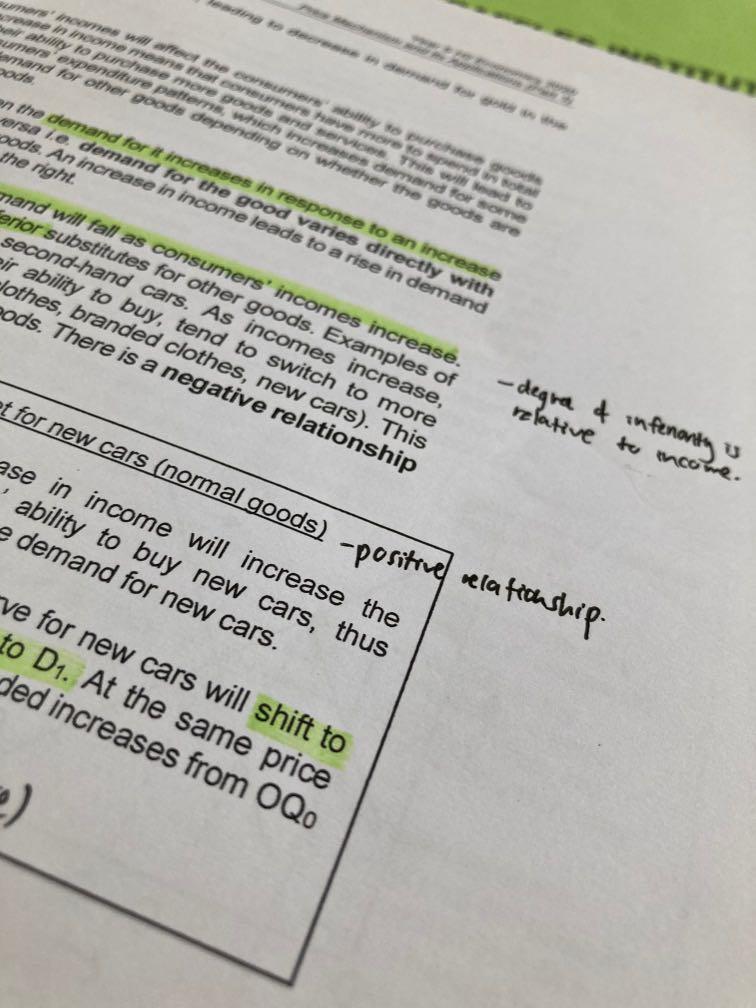 INSTITUT
Price Mechanism and its Applications (Part 1)
, leading to decrease in demand for gold in the
sumers' incomes will affect the consumers' ability to purchase goods
crease in income means that consumers have more to spend in total
heir ability to purchase more goods and services. This will lead to
sumers expenditure patterns, which increases demand for some
demand for other goods depending on whether the goods are
oods.
en the demand for it increases in response to an increase
versa i.e. demand for the good varies directly with
oods. An increase in income leads to a rise in demand
the right.
mand will fall as consumers' incomes increase.
ferior substitutes for other goods. Examples of
second-hand cars. As incomes increase,
eir ability to buy, tend to switch to more
lothes, branded clothes, new cars). This
oods. There is a negative relationship
- degree of inferiority is
relative to income.
et for new cars (normal goods)
- positive relationship.
ase in income will increase the
' ability to buy new cars, thus
e demand for new cars.
rve for new cars will shift to
to D₁. At the same price
ded increases from OQ₀
e)